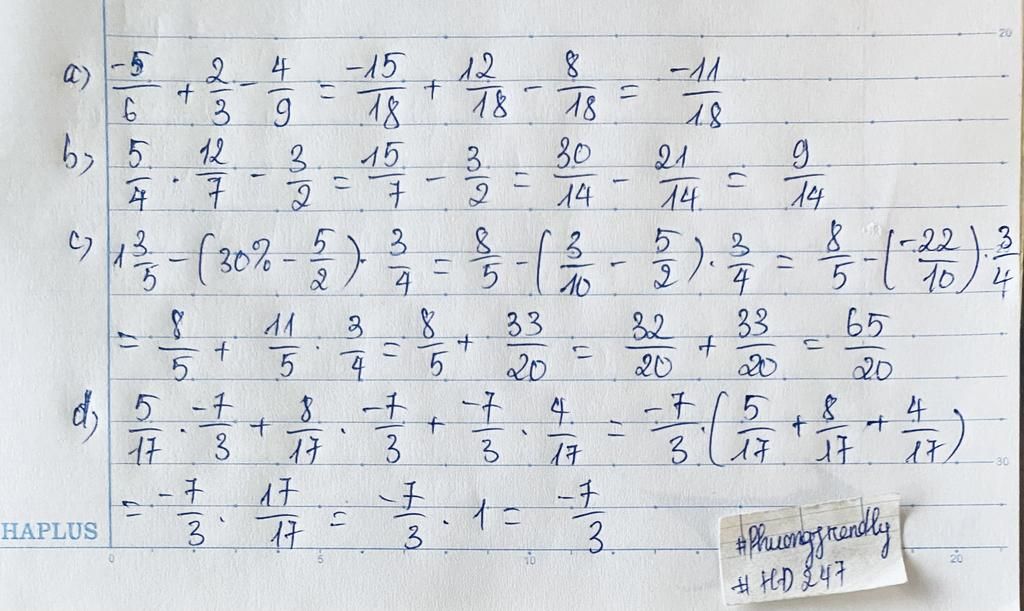 a) -5/6 + 2/3 - 4/9 = -15/18 + 12/18 - 8/18 = -11/18
b) 5/4 . 12/7 - 3/2 = 15/7 - 3/2 = 30/14 - 21/14 = 9/14
c) 1 3/5 - (30% - 5/2) . 3/4 = 8/5 - (3/10 - 5/2) . 3/4 = 8/5 - (-22/10) . 3/4
= 8/5 + 11/5 . 3/4 = 8/5 + 33/20 = 32/20 + 33/20 = 65/20
d) 5/17 . -7/3 + 8/17 . -7/3 + -7/3 . 4/17 = -7/3 . (5/17 + 8/17 + 4/17)
= -7/3 . 17/17 = -7/3 . 1 = -7/3
HAPLUS
0 5 10 20
20
30
#Phuongfrendly
#HD247